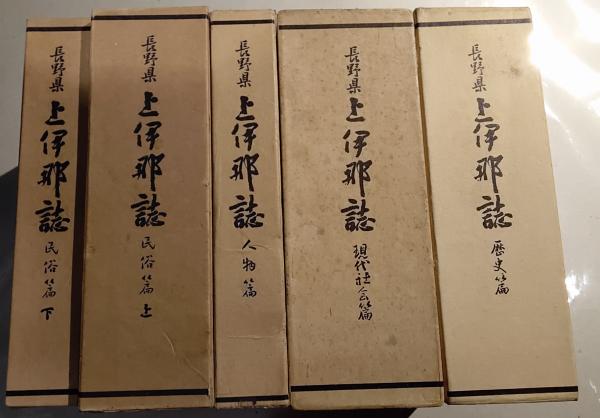 長野県 上伊那誌 民俗篇 下
長野県 上伊那誌 民俗篇 上
長野県 上伊那誌 人物篇
長野県 上伊那誌 現代社会篇
長野県 上伊那誌 歴史篇